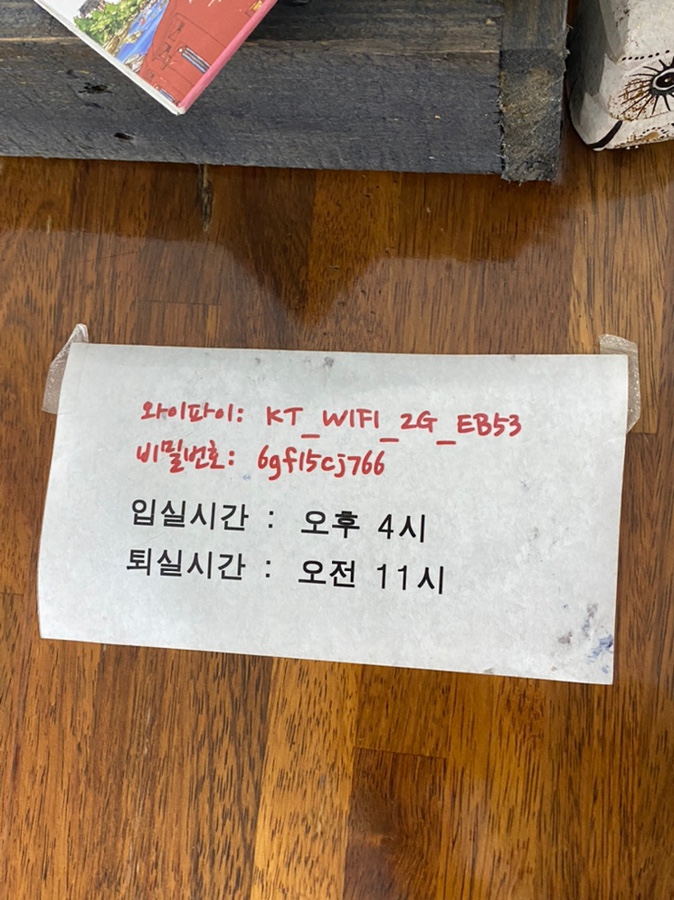 와이파이: KT_WIFI_2G_EB53
비밀번호: 6gf15cj766
입실시간 : 오후 4시
퇴실시간 : 오전 11시